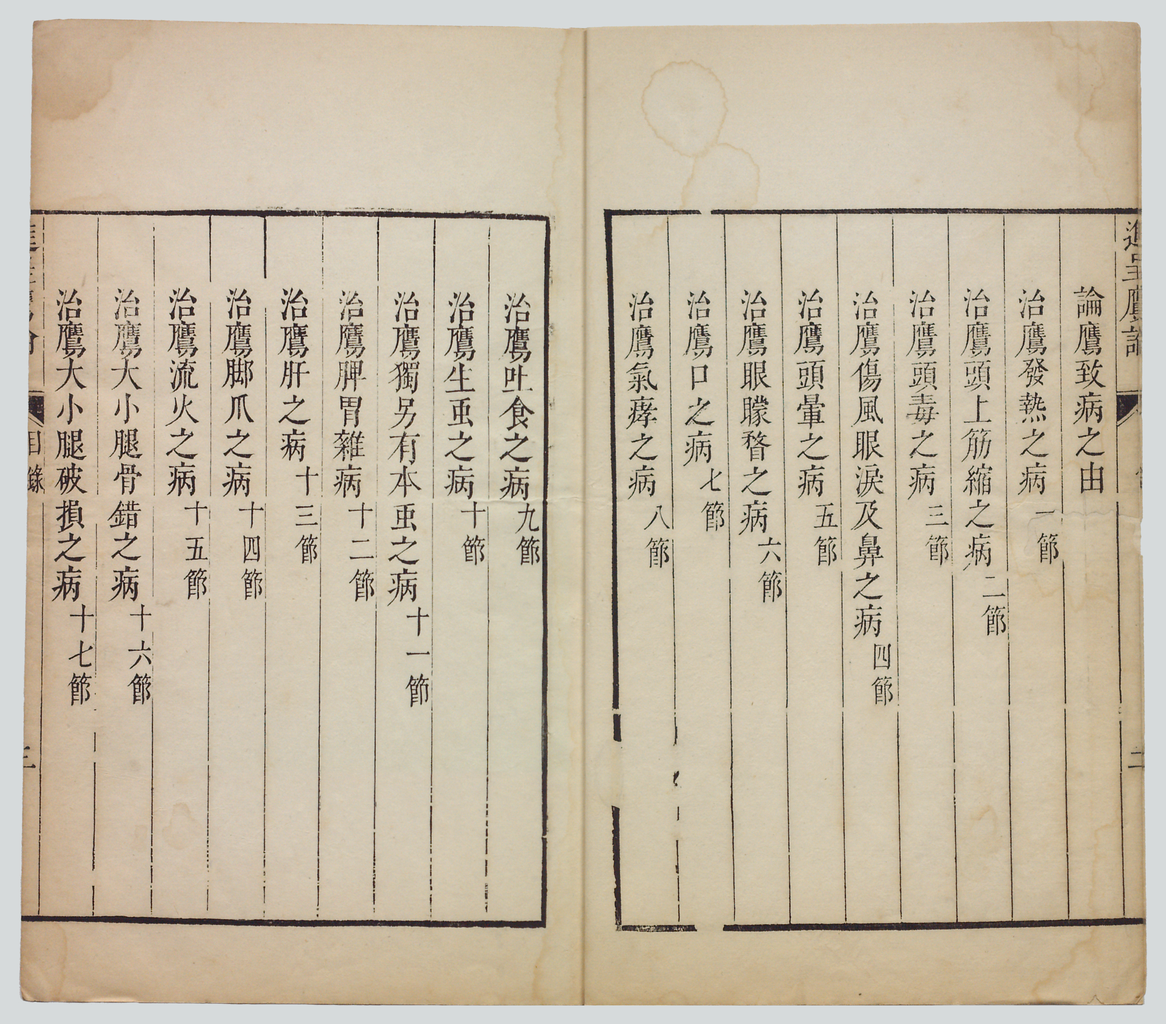 進呈鷹論
論鷹致病之由
治鷹發熱之病 一節
治鷹頭上筋縮之病 二節
治鷹頭毒之病 三節
治鷹傷風眼淚及鼻之病 四節
治鷹頭暈之病 五節
治鷹眼矇瞀之病 六節
治鷹口之病 七節
治鷹氣㾱之病 八節
二
治鷹吐食之病 九節
治鷹生虫之病 十節
治鷹獨另有本虫之病 十一節
治鷹脾胃雜病 十二節
治鷹肝之病 十三節
治鷹脚爪之病 十四節
治鷹流火之病 十五節
治鷹大小腿骨錯之病 十六節
治鷹大小腿破損之病 十七節
目錄